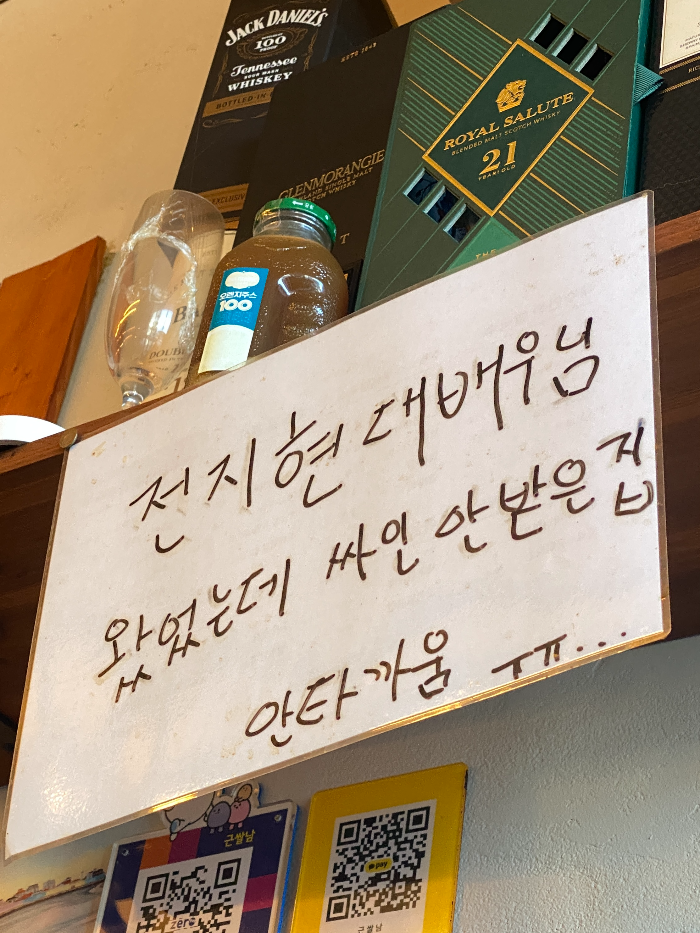 JACK DANIEL'S
100
Tennessee
SOUR MASH
WHISKEY
BOTTLED-IN-
EXCLUSIV
GLENMORANGIE
HIGHLAND SINGLE MALT
SCOTCH WHISKY
ROYAL SALUTE
BLENDED MALT SCOTCH WHISKY
21
YEARS OLD
THE
오렌지주스
100
DOUB
전지현 대배우님
왔었는데 싸인 안받은 집
안타까움 ㅜㅠ...
근쌀남
zero
pay
근쌀남